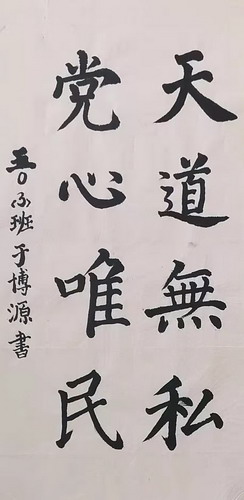 天道無私
党心唯民
五〇六班于博源書